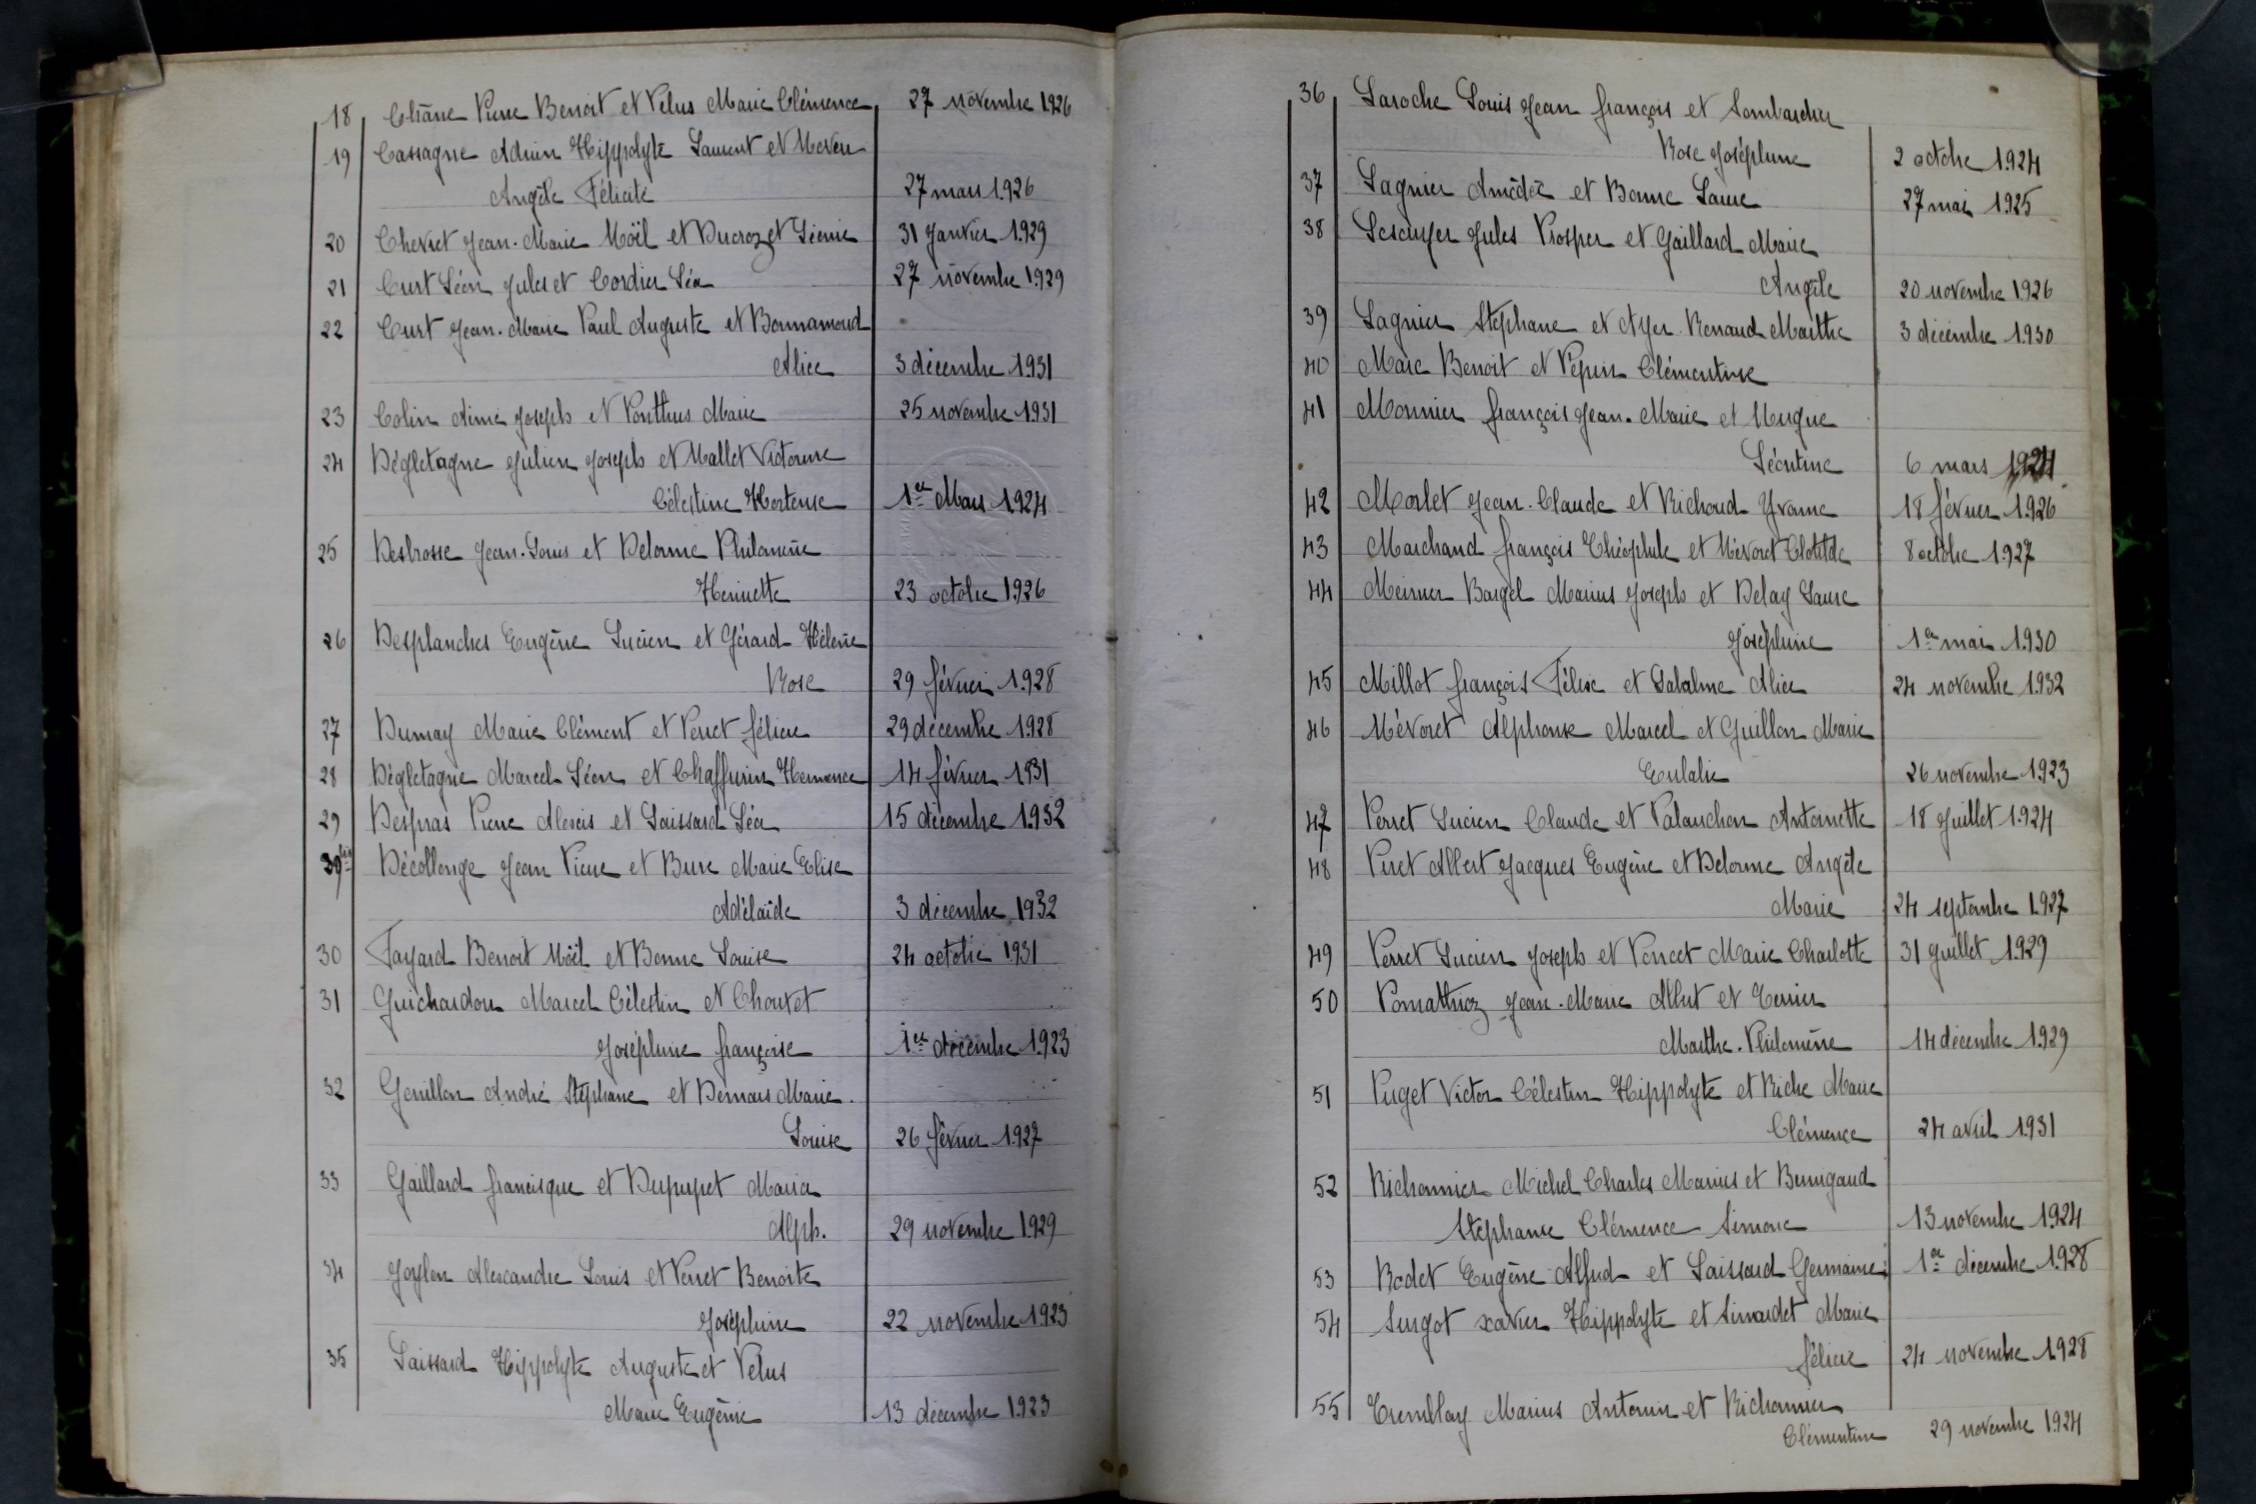 18 Châne Pierre Benoit et Velus Marie Clémence 27 novembre 1926
19 Cassagne Adrien Hippolyte Laurent et
Angèle Félicité 27 mars 1926
20 Chevret Jean-Marie Noël et Ducrozet 31 Janvier 1929
21 Curt Léon Jules et Cordier Léa 27 novembre 1929
22 Curt Jean-Marie Paul Auguste et Bonnamour
Alice 3 décembre 1931
23 Colin Aimé Joseph et Ponthus Marie 25 novembre 1931
24 Dégletagne Julien Joseph et Mallet Victorine
Célestine Hortense 1er Mars 1924
25 Desbrosse Jean-Louis et Delorme Philomène
Henriette 23 octobre 1926
26 Desplanches Eugène Lucien et Gérard Hélène
Rose 29 février 1928
27 Dumay Marie Clément et Perret félicie 29 décembre 1928
28 Dégletagne Marcel Léon et Chaffurin Hermance 14 février 1931
29 Despras Pierre Alexis et Laissard Léa 15 décembre 1932
29bis Décollonge Jean Pierre et Bure Marie Elise
Adélaïde 3 décembre 1932
30 Fayard Benoit Noël et Bonne Louise 24 octobre 1931
31 Guichardon Marcel Célestin et Chouret
Joséphine françoise 1er décembre 1923
32 Genillon André Stéphane et Demars Marie
Louise 26 février 1927
33 Gaillard francisque et Dupupet Maria
Alph. 29 novembre 1929
34 Joylon Alexandre Louis et Perret Benoite
Joséphine 22 novembre 1923
35 Laissard Hippolyte Auguste et Velus
Marie Eugénie 13 décembre 1923
36 Laroche Louis Jean françois et Lombardier
Rose Joséphine 2 octobre 1924
37 Lagnier Amédée et Bonne Laure 27 mai 1925
38 Lescuyer Jules Prosper et Gaillard Marie
Angèle 20 novembre 1926
39 Lagnier Stéphane et Ayer Renaud Marthe 3 décembre 1930
40 Marc Benoit et Pépin Clémentine
41 Monnier françois Jean-Marie et Mugue
Léontine 6 mars 1924
42 Morlet Jean-Claude et Richoud Yvonne 18 février 1926
43 Marchand françois Théophile et Mévoret Clotilde 8 octobre 1927
44 Bargel Marius Joseph et Delay Laure
Joséphine 1er mai 1930
45 Millot françois Félix et Labalme Alice 24 novembre 1932
46 Mévoret Alphonse Marcel et Guillon Marie
Eulalie 26 novembre 1923
47 Perret Lucien Claude et Palanchon Antoinette 18 Juillet 1924
48 Piret Albert Jacques Eugène et Delorme Angèle
Marie 24 septembre 1927
49 Perret Lucien Joseph et Poncet Marie Charlotte 31 Juillet 1929
50 Pomathioz Jean-Marie Albert et Terrier
Marthe-Philomène 14 décembre 1929
51 Puget Victor Célestin Hippolyte et Riche Marie
Clémence 24 avril 1931
52 Richonnier Michel Charles Marius et
Stéphanie Clémence Simone 13 novembre 1924
53 Rodet Eugène Alfred et Laissard Germaine 1er décembre 1928
54 Surgot xavier Hippolyte et Simardet Marie
félicie 24 novembre 1928
55 Tremblay Marius Antonin et Richonnier
Clémentine 29 novembre 1924